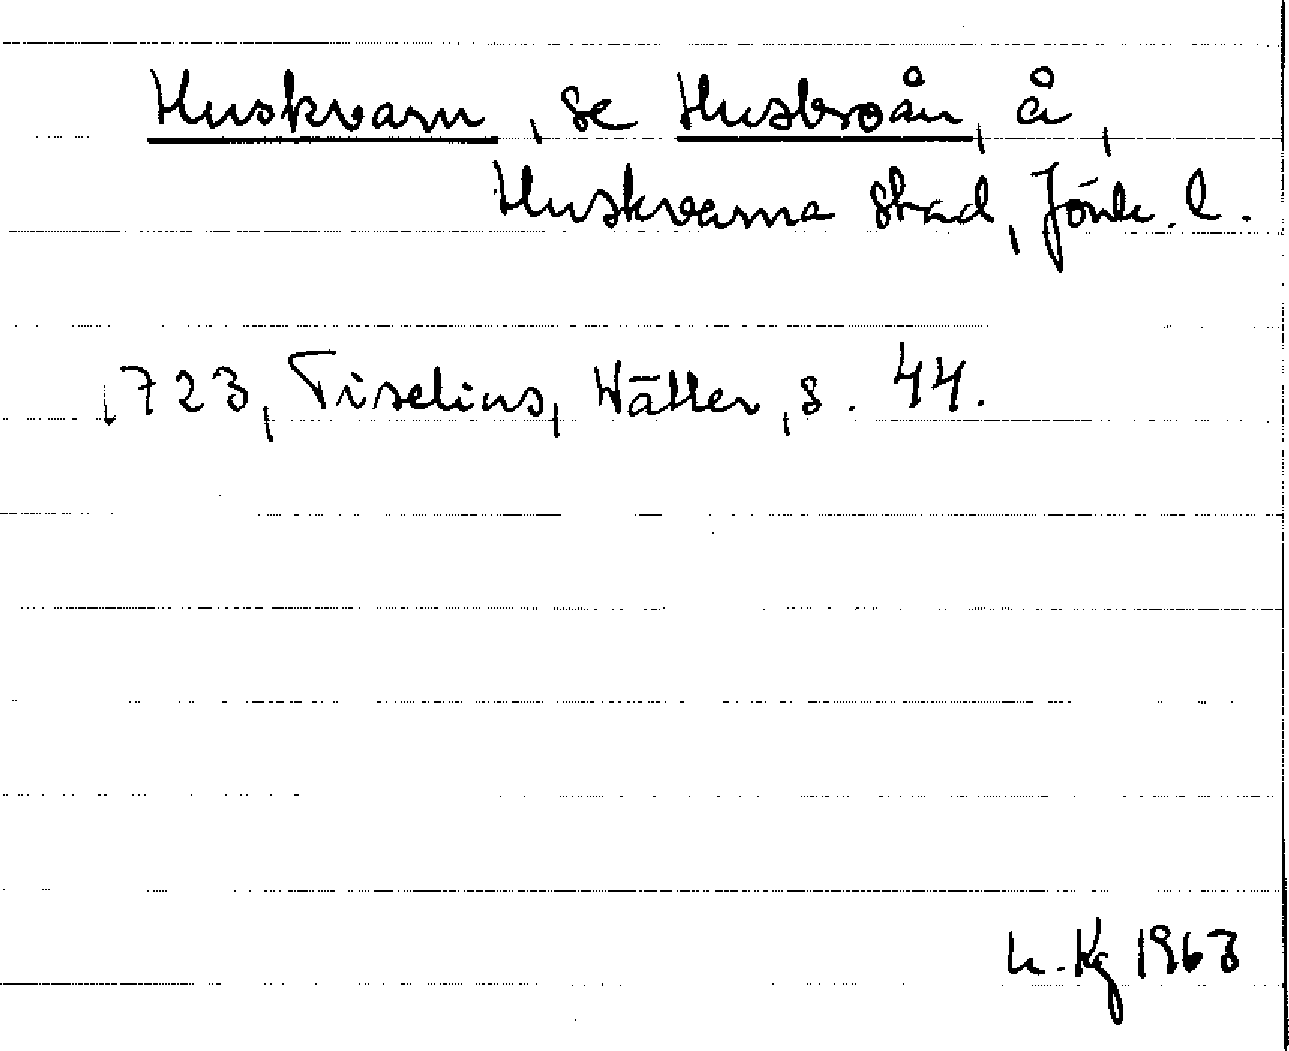 Huskvarn, se Husbroån, å,
Huskvarna stad, Jönk. l.
1723, Tiselius, Wätter, s. 44.
Kg 1963